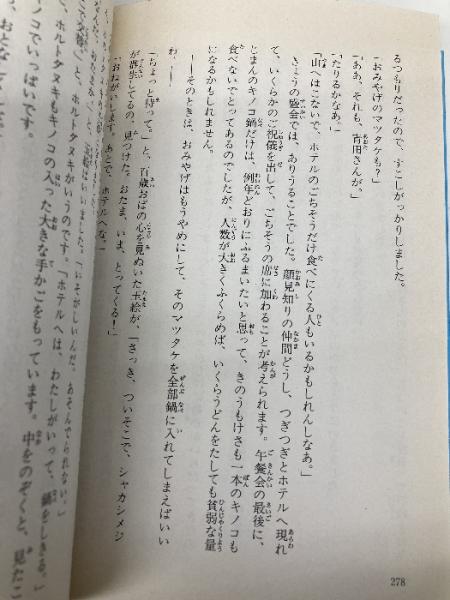 るつもりだったので、すこしがっかりしました。
「おみやげのマツタケも？」
「ああ、それも、吉田さんが。」
「たりるかなあ。」
「山へはこないで、ホテルのごちそうだけ食べにくる人もいるかもしれんしなあ。」
きょうの盛会では、ありうることでした。顔見知りの仲間どうし、つぎつぎとホテルへ現れ
て、いくらかのご祝儀を出して、ごちそうの席に加わることが考えられます。午餐会の最後に、
じまんのキノコ鍋だけは、例年どおりにふるまいたいと思って、きのうもけさも一本のキノコも
食べないでとってあるのでしたが、人数が大きくふくらめば、いくらうどんをたしても貧弱な量
になるかもしれません。
――そのときは、おみやげはもうやめにして、そのマツタケを全部鍋に入れてしまえばいい
わ。――
「ちょっと待って。」と、百歳おばの心を見ぬいた玉絵が、「さっき、ついそこで、シャカシメジ
が群生してるの、見つけた。おたま、いま、とってくる！」
「おねがいします。あとで、ホテルへな。」
「にそがしいんだ。あそんでられない。」
と、ホルトタヌキがいうのです。「ホテルへは、わたしがいって、鍋をしきる。」
キノコの入った大きな手かごをもっています。中をのぞくと、見たこ
コでいっぱいです。
278